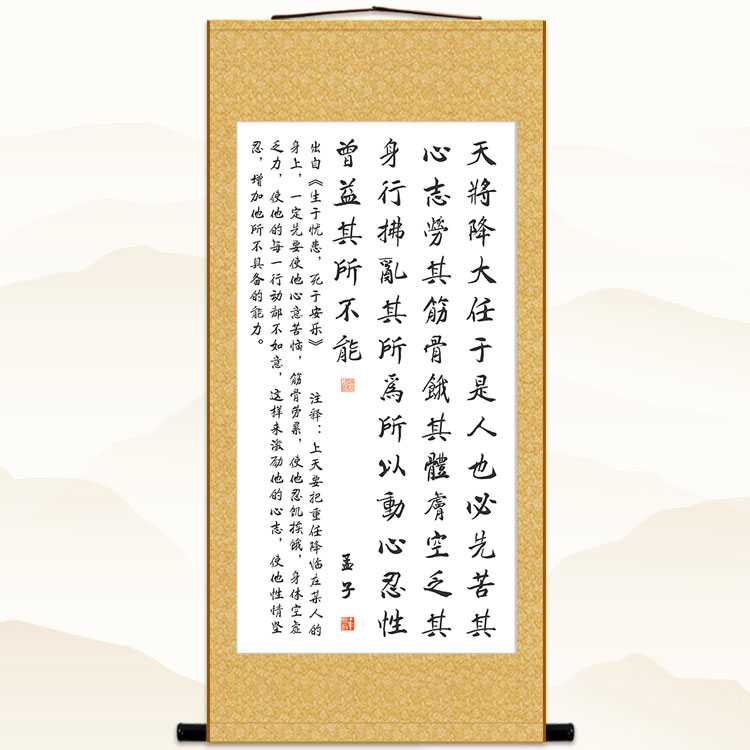 天將降大任于是人也必先苦其
心志勞其筋骨餓其體膚空乏其
身行拂亂其所爲所以動心忍性
曾益其所不能
孟子
出自《生于忧患，死于安乐》 注释：上天要把重任降临在某人的
身上，一定先要使他心意苦恼，筋骨劳累，使他忍饥挨饿，身体空虚
乏力，使他的每一行动都不如意，这样来激励他的心志，使他性情坚
忍，增加他所不具备的能力。